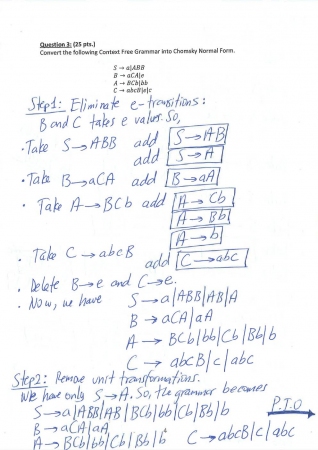 Question 3: (25 pts.)
Convert the following Context Free Grammar into Chomsky Normal Form.
S → a|ABB
B → aCA|e
A → BCb|bb
C → abcB|e|c
Step1: Eliminate e-transitions:
B and C takes e values. So,
• Take S → ABB add S → AB
add S → A
• Take B → aCA add B → aA
• Take A → BCb add A → Cb
A → Bb
A → b
• Take C → abcB add C → abc
• Delete B → e and C → e.
• Now, we have S → a|ABB|AB|A
B → aCA|aA
A → BCb|bb|Cb|Bb|b
C → abcB|c|abc
Step2: Remove unit transformations.
We have only S → A. So, the grammar becomes
S → a|ABB|AB|BCb|bb|Cb|Bb|b
P.T.O →
B → aCA|aA
A → BCb|bb|Cb|Bb|b C → abcB|c|abc